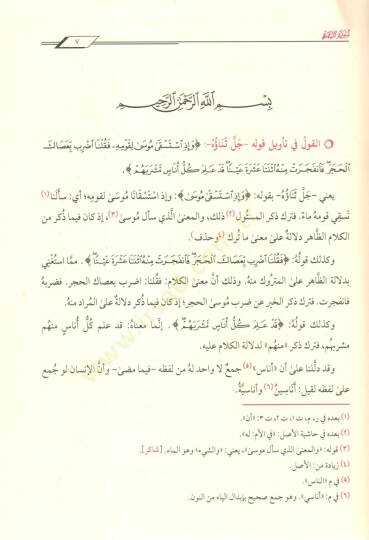 سُورَةُ البَقَرَةِ
٧
بِسْمِ اللَّهِ الرَّحْمَنِ الرَّحِيمِ
القول في تأويل قوله -جَلَّ ثَنَاؤُهُ-: ﴿وَإِذِ اسْتَسْقَىٰ مُوسَىٰ لِقَوْمِهِ فَقُلْنَا اضْرِب بِّعَصَاكَ
الْحَجَرَ فَانفَجَرَتْ مِنْهُ اثْنَتَا عَشْرَةَ عَيْنًا قَدْ عَلِمَ كُلُّ أُنَاسٍ مَّشْرَبَهُمْ﴾.
يعني -جَلَّ ثَنَاؤُهُ- بقوله: ﴿وَإِذِ اسْتَسْقَىٰ مُوسَىٰ﴾: وإذ استسقانا موسىٰ لقومه؛ أي: سألنا(١)
نسقي قومهُ ماءً. فترك ذكر المسئول(٢) ذلك، والمعنىٰ الَّذي سأل موسىٰ(٣)، إذ كان فيما ذُكر من
الكلام الظَّاهر دلالةٌ علىٰ معنىٰ ما تُرك (٤وحذف).
وكذلك قولُهُ: ﴿فَقُلْنَا اضْرِب بِّعَصَاكَ الْحَجَرَ فَانفَجَرَتْ مِنْهُ اثْنَتَا عَشْرَةَ عَيْنًا﴾. ممَّا استُغْنِي
بدلالة الظَّاهر علىٰ المتروك منهُ. وذلك أنَّ معنىٰ الكلام: فقُلنا: اضرب بعصاك الحجر. فضربهُ
فانفجرت. فترك ذكر الخبر عن ضرب موسىٰ الحجر؛ إذ كان فيما ذُكر دلالةٌ علىٰ المُراد منهُ.
وكذلك قولُهُ: ﴿قَدْ عَلِمَ كُلُّ أُنَاسٍ مَّشْرَبَهُمْ﴾. إنَّما معناهُ: قد علم كُلُّ أُناسٍ منهُم
مشربهُم. فترك ذكر «منهُم» لدلالة الكلام عليه.
وقد دلَّلنا علىٰ أن «أناس»(٥) جمعٌ لا واحد لهُ من لفظه -فيما مضىٰ- وأنَّ الإنسان لو جُمع
علىٰ لفظه لقيل: أَنَاسِينُ(٦) وأناسيةٌ.
(١) بعده في ر، م، ت ١، ت ٢، ت ٣: «أن».
(٢) بعده في حاشية الأصل: «في الأم: له».
(٣) قوله: «والمعنىٰ الذي سأل موسىٰ»، يعني: «والشيء» وهو الماء. [شاكر].
(٤) زيادة من: الأصل.
(٥) في م «الناس».
(٦) في م: «أناسي». وهو جمع صحيح بإبدال الياء من النون.